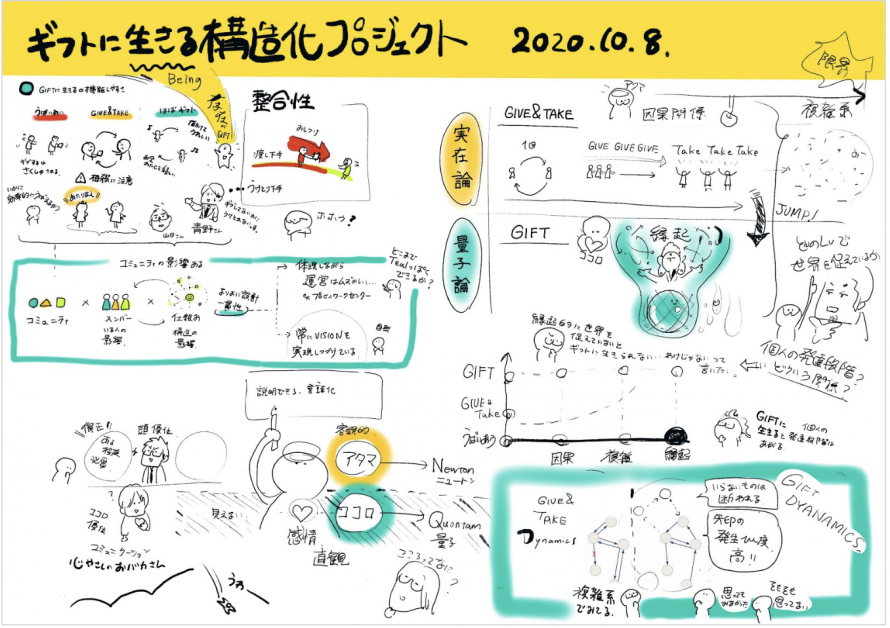 ギフトに生きる構造化プロジェクト 2020.10.8.
Being
存在がGIFT
GIFTに生きるの構造しやすさ
うばいあい
GIVE&TAKE
ほぼギフト
ギブする人は
さくしゅされる。
相殺に注意
いかに
効率的にうばえるか?
あたりまえ
山田さん
青野さん
整合性
おしつけ
渡し下手
うけとり下手
ホホゥ?
コミュニティの影響ある
コミュニティ
×
メンバー
×
仕組の
構造の
影響
よりよい設計
一貫性
体現しながら
運営はムズかしい…
常にVISIONを
実現しつづけている。
どこまで
Tealっぽく
できるか?
実在論
量子論
GIVE&TAKE
因果関係
複雑系
限界
1回
GIVE GIVE GIVE
Take Take Take
JUMP!
GIFT
ココロ
縁起
どのLvで
世界を捉えているか
個人の発達段階?
どういう関係?
縁起的に世界を
捉えていないと
ギフトに生きられない…わけじゃないって
言いたい。
GIFT
GIVE&
Take
うばいあう
因果
複雑
縁起
GIFTに
生きると
個人の
発達段階は
あがる。
説明できる、言語化
客観的
アタマ
Newton
ニュートン
ココロ
Quontam
量子
見えない
感情
直観
ココロってなに?
優先!!
頭優位
ある程度
必要
ココロ
優位
コミュニケーション
心やさしいおバカさん
うぉ
GIVE&
TAKE
Dynamics
GIFT
DYANAMICS
いらないものは
断われる
矢印の
発生ひん度
高!!
複雑系
でみてる。
思っても
みなかった
そもそも
思ってない